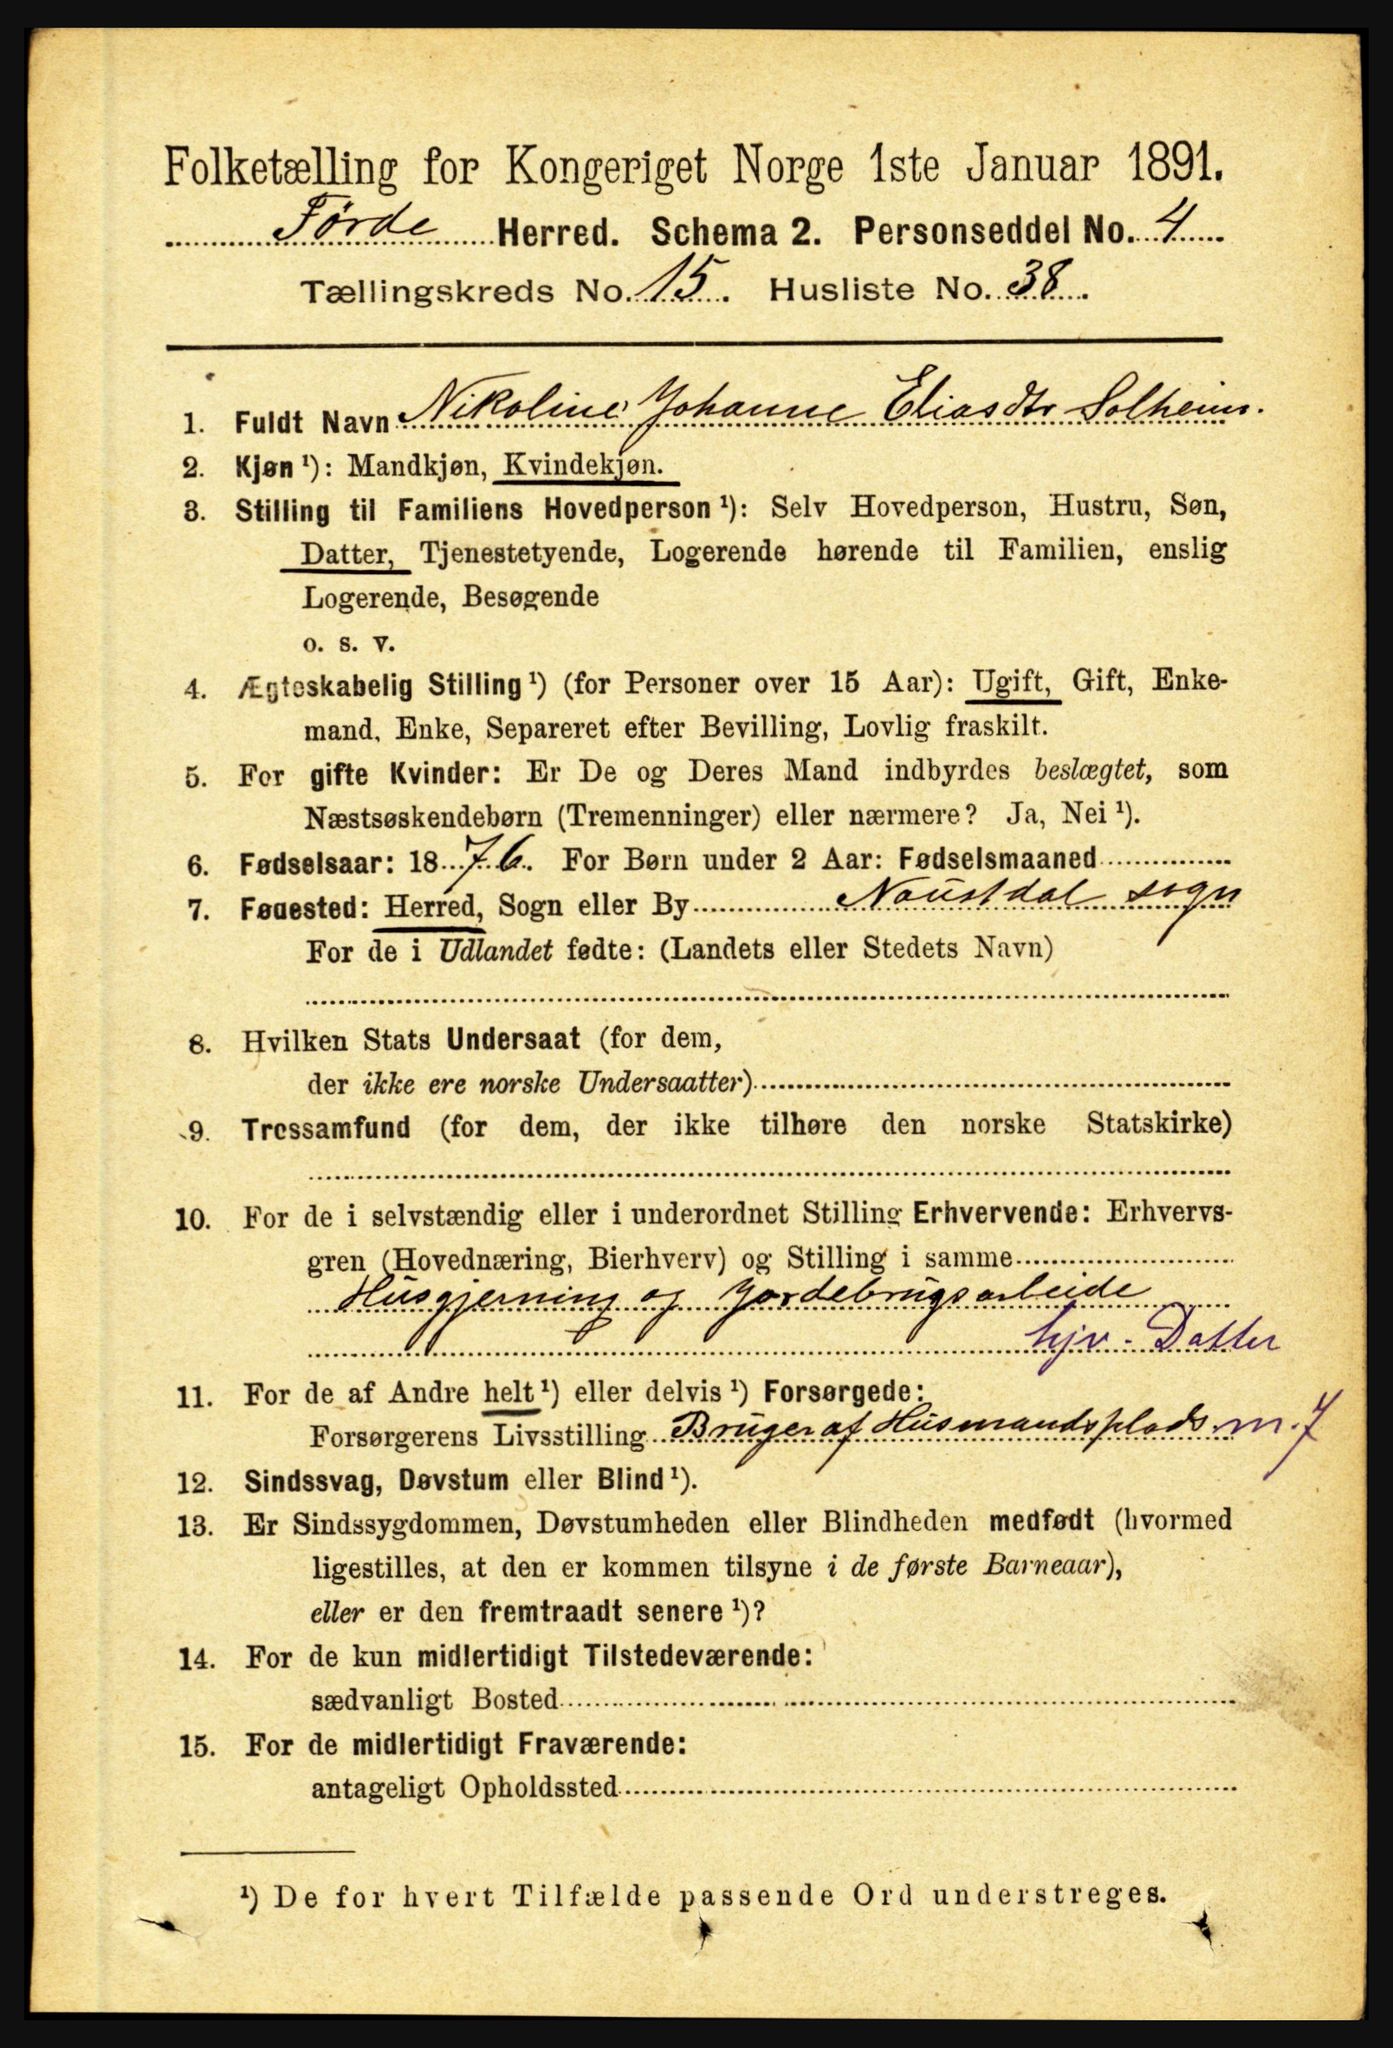 Folketælling for Kongeriget Norge 1ste Januar 1891.
Førde Herred. Schema 2. Personseddel No. 4
Tællingskreds No. 15. Husliste No. 38.
1. Fuldt Navn Nikoline Johanne Eliasdtr Solheim.
2. Kjøn ¹): Mandkjøn, Kvindekjøn.
3. Stilling til Familiens Hovedperson ¹): Selv Hovedperson, Hustru, Søn,
Datter, Tjenestetyende, Logerende hørende til Familien, enslig
Logerende, Besøgende
o. s. v.
4. Ægteskabelig Stilling ¹) (for Personer over 15 Aar): Ugift, Gift, Enke-
mand, Enke, Separeret efter Bevilling, Lovlig fraskilt.
5. For gifte Kvinder: Er De og Deres Mand indbyrdes beslægtet, som
Næstsøskendebørn (Tremenninger) eller nærmere? Ja, Nei ¹).
6. Fødselsaar: 1876. For Børn under 2 Aar: Fødselsmaaned
7. Fødested: Herred, Sogn eller By Naustdal sogn
For de i Udlandet fødte: (Landets eller Stedets Navn)
8. Hvilken Stats Undersaat (for dem,
der ikke ere norske Undersaatter)
9. Trossamfund (for dem, der ikke tilhøre den norske Statskirke)
10. For de i selvstændig eller i underordnet Stilling Erhvervende: Erhvervs-
gren (Hovednæring, Bierhverv) og Stilling i samme
Husgjerning og Jordebrugsarbeide
hjv - Datter
11. For de af Andre helt ¹) eller delvis ¹) Forsørgede:
Forsørgerens Livsstilling Bruger af Husmandsplads m. 7
12. Sindssvag, Døvstum eller Blind ¹).
13. Er Sindssygdommen, Døvstumheden eller Blindheden medfødt (hvormed
ligestilles, at den er kommen tilsyne i de første Barneaar),
eller er den fremtraadt senere ¹)?
14. For de kun midlertidigt Tilstedeværende:
sædvanligt Bosted
15. For de midlertidigt Fraværende:
antageligt Opholdssted
¹) De for hvert Tilfælde passende Ord understreges.